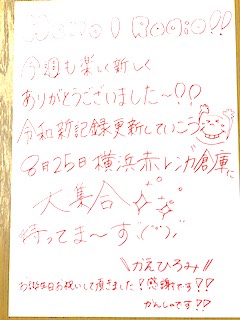 今週も楽しく新しく
ありがとうございました〜!!
令和新記録更新していこう
8月25日横浜赤レンガ倉庫に
大集合
待ってま〜す
かえひろみ
お誕生日お祝いして頂きました!感謝です!!